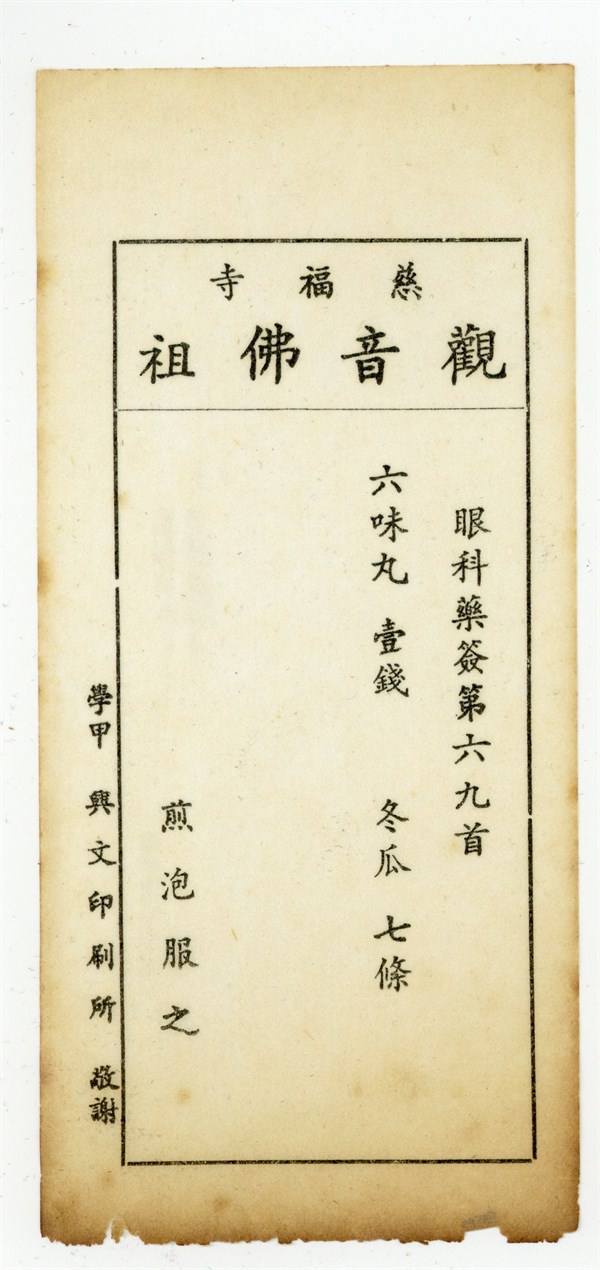 慈福寺
觀音佛祖
眼科藥簽第六九首
六味丸 壹錢 冬瓜 七條
煎泡服之
學甲 興文印刷所 敬謝